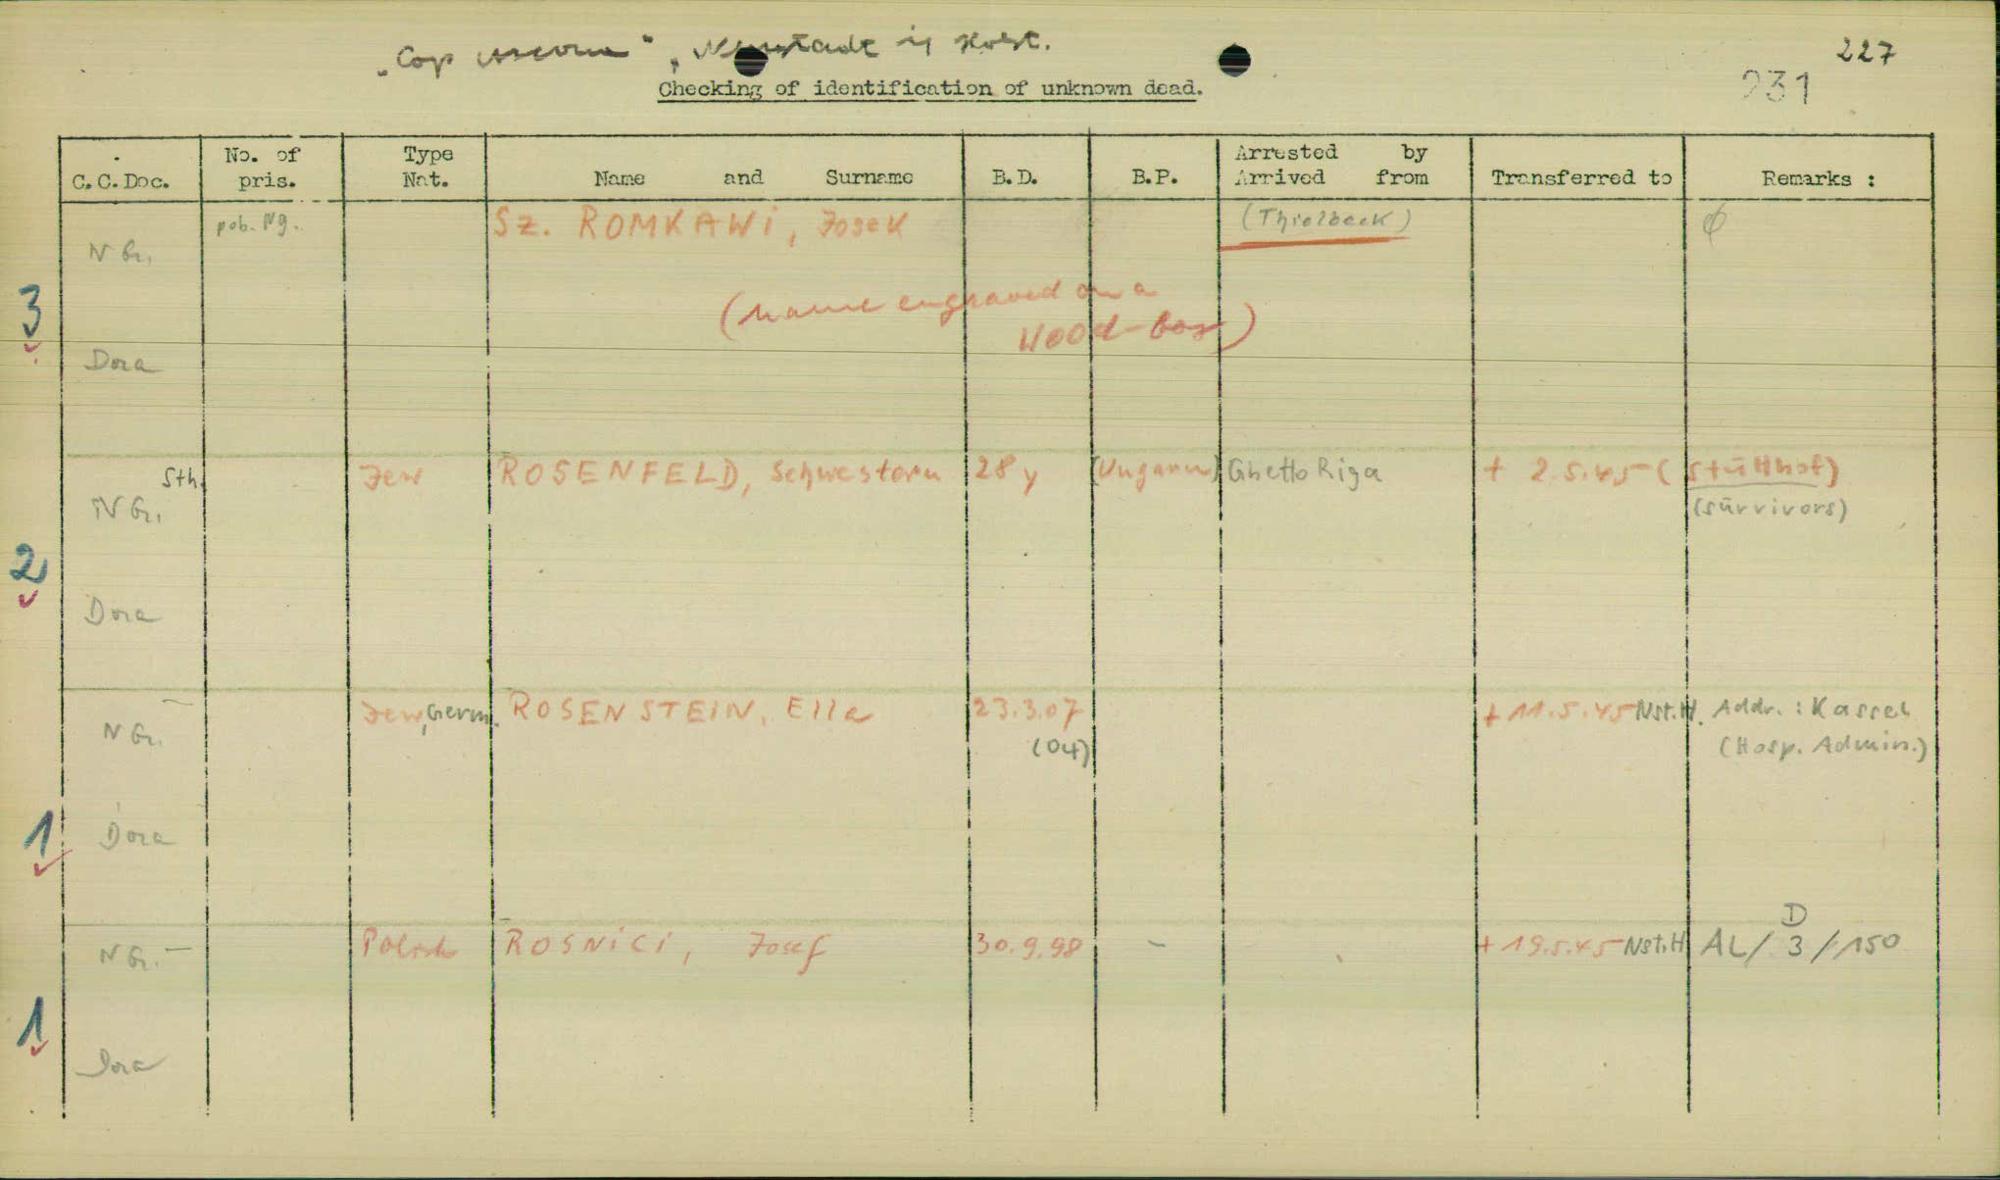 „Cap Arcona“, „Neustadt in Holst.
227
231
Checking of identification of unknown dead.
C.C.Doc. No. of pris. Type Nat. Name and Surname B.D. B.P. Arrested by Arrived from Transferred to Remarks :
3
N Gr. pob. Ng. Sz. ROMKAWi, Josek (Thielbeck) ϕ
(Name engraved on a
Wood-box)
Dora
2
Sth.
N Gr. Jew ROSENFELD, Schwestern 28 y (Ungarn) Ghetto Riga + 2.5.45 (Stutthof)
(survivors)
Dora
1
N Gr. – Jew, Germ. ROSENSTEiN, Ella 23.3.07 + 11.5.45 Nst.H. Addr. : Kassel
(04) (Hosp. Admin.)
Dora
1
N Gr. – Polish ROSNiCi, Josef 30.9.98 – + 19.5.45 Nst.H AL/ D 3 /150
Dora